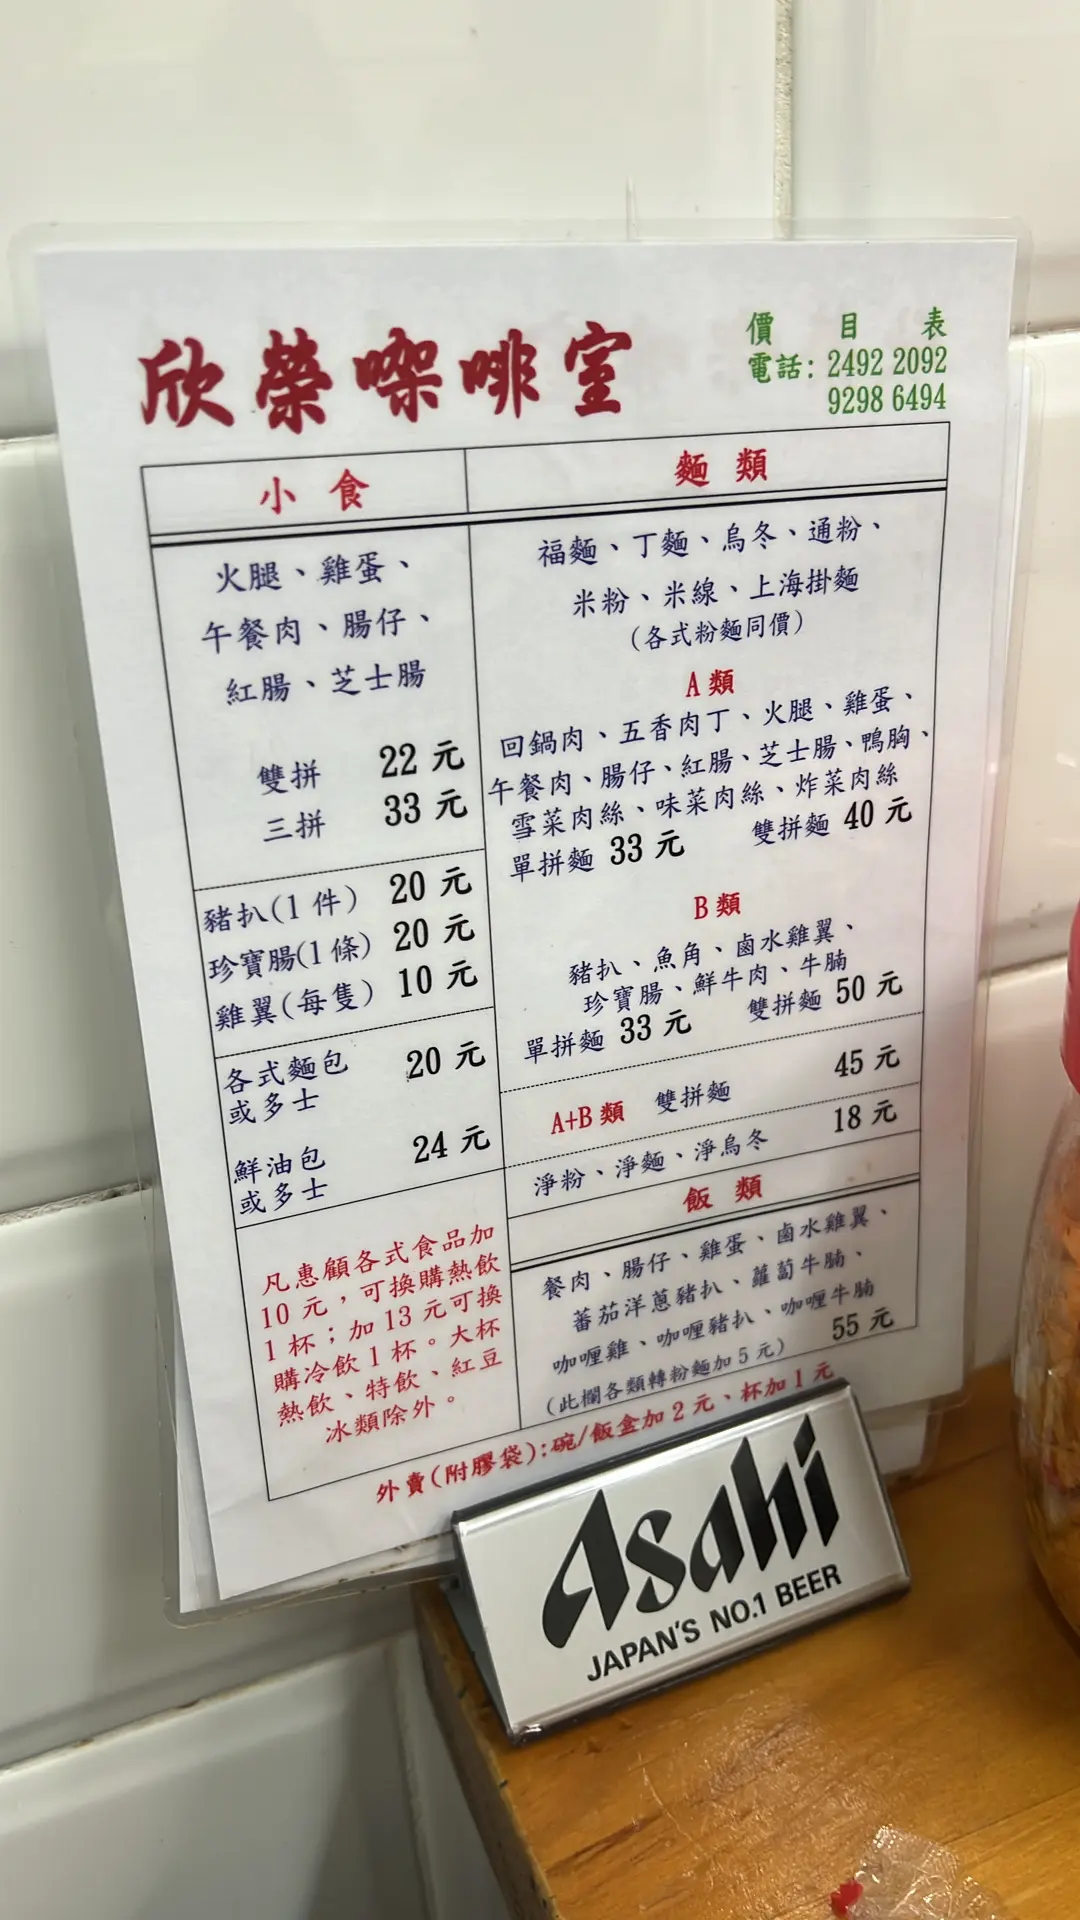 欣榮㗎啡室
價目表
電話: 2492 2092
9298 6494
小食
火腿、雞蛋、
午餐肉、腸仔、
紅腸、芝士腸
雙拼 22元
三拼 33元
豬扒(1件) 20元
珍寶腸(1條) 20元
雞翼(每隻) 10元
各式麵包
或多士 20元
鮮油包
或多士 24元
凡惠顧各式食品加
10元，可換購熱飲
1杯；加13元可換
購冷飲1杯。大杯
熱飲、特飲、紅豆
冰類除外。
麵類
福麵、丁麵、烏冬、通粉、
米粉、米線、上海掛麵
(各式粉麵同價)
A類
回鍋肉、五香肉丁、火腿、雞蛋、
午餐肉、腸仔、紅腸、芝士腸、鴨胸、
雪菜肉絲、味菜肉絲、炸菜肉絲
單拼麵 33元 雙拼麵 40元
B類
豬扒、魚角、鹵水雞翼、
珍寶腸、鮮牛肉、牛腩
單拼麵 33元 雙拼麵 50元
A+B類 雙拼麵 45元
淨粉、淨麵、淨烏冬 18元
飯類
餐肉、腸仔、雞蛋、鹵水雞翼、
蕃茄洋蔥豬扒、蘿蔔牛腩、
咖喱雞、咖喱豬扒、咖喱牛腩
55元
(此欄各類轉粉麵加5元)
外賣(附膠袋):碗/飯盒加2元、杯加1元
Asahi
JAPAN'S NO.1 BEER